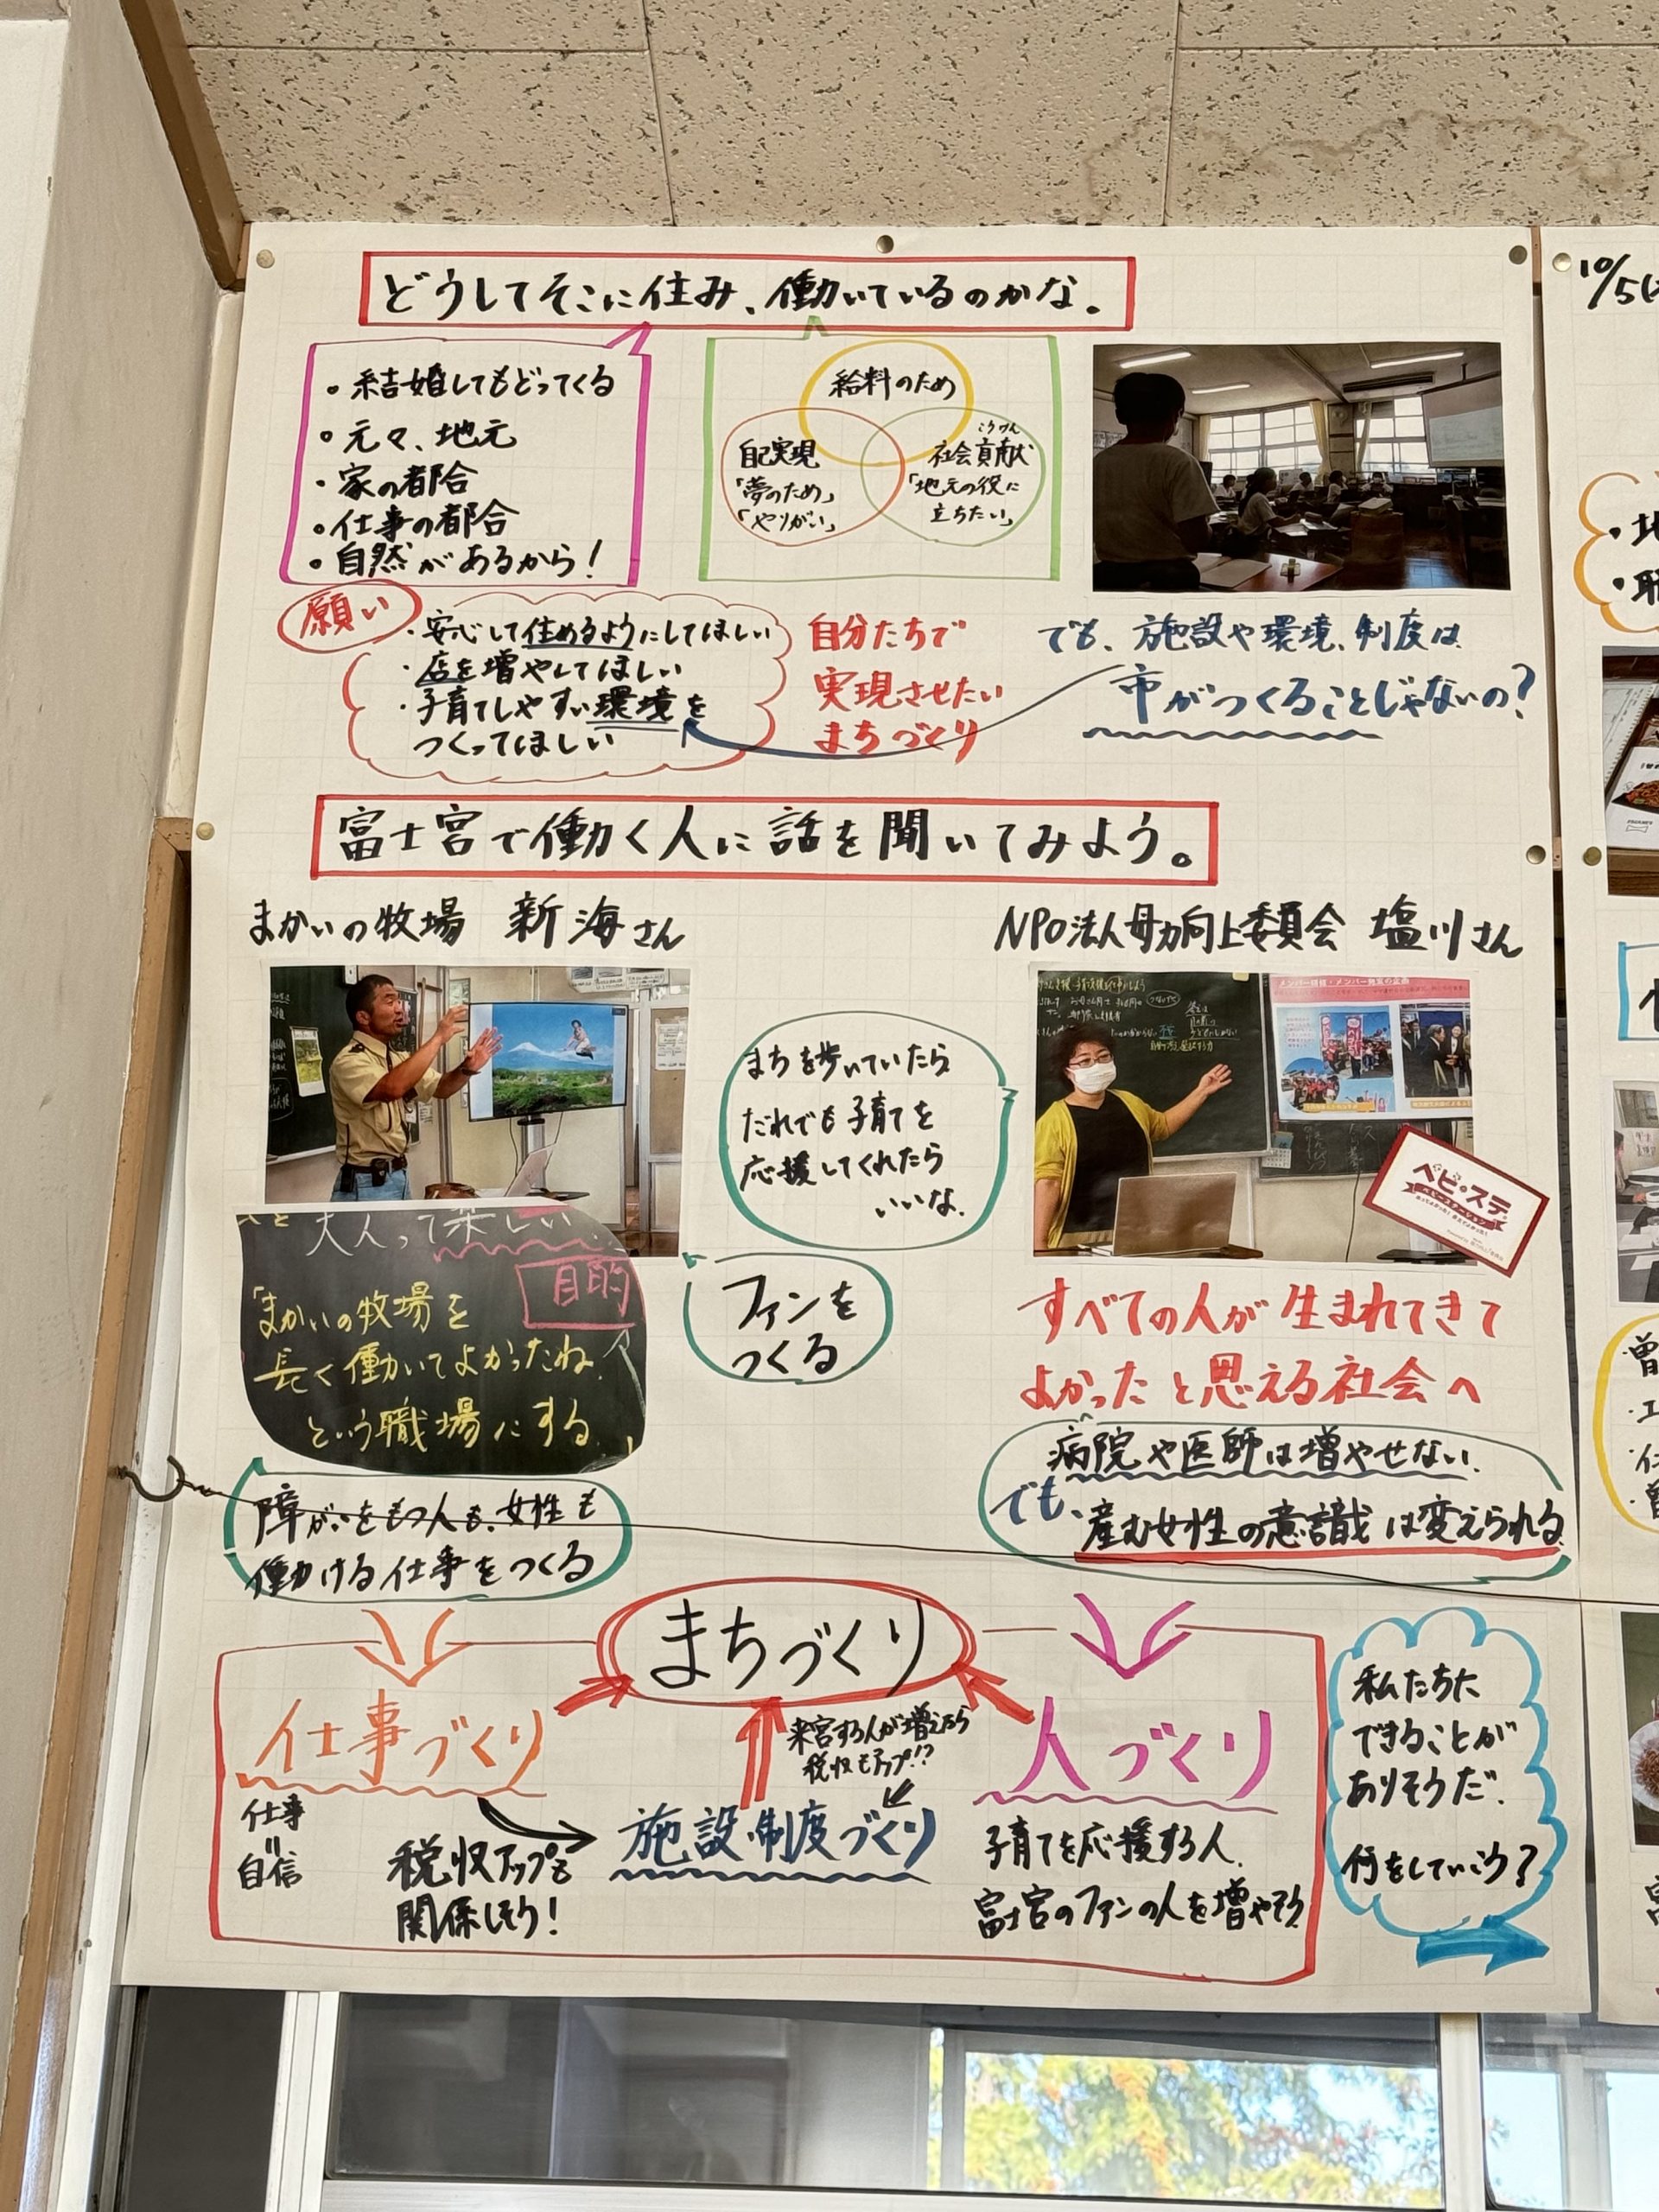 どうしてそこに住み、働いているのかな。
・結婚してもどってくる
・元々、地元
・家の都合
・仕事の都合
・自然があるから!
給料のため
自己実現
「夢のため」
「やりがい」
こうけん
社会貢献
「地元の役に
立ちたい」
願い
・安心して住めるようにしてほしい
・店を増やしてほしい
・子育てしやすい環境を
つくってほしい
自分たちで
実現させたい
まちづくり
でも、施設や環境、制度は
市がつくることじゃないの?
富士宮で働く人に話を聞いてみよう。
まかいの牧場 新海さん
NPO法人母力向上委員会 塩川さん
まちを歩いていたら
だれでも子育てを
応援してくれたら
いいな。
メンバー様様・メンバー発案の企画
ベビ・ステ
ベビーステーション
大人って楽しい
目的
「まかいの牧場を
長く働いてよかったね。
という職場にする。」
ファンを
つくる
すべての人が生まれてきて
よかったと思える社会へ
病院や医師は増やせない。
でも、産む女性の意識は変えられる。
障がいをもつ人も、女性も
働ける仕事をつくる
まちづくり
仕事づくり
仕事
=
自信
税収アップも
関係しそう!
来宮する人が増えたら
税収もアップ!?
施設・制度づくり
人づくり
子育てを応援する人、
富士宮のファンの人を増やそう
私たちに
できることが
ありそうだ。
何をしていこう?
10/5